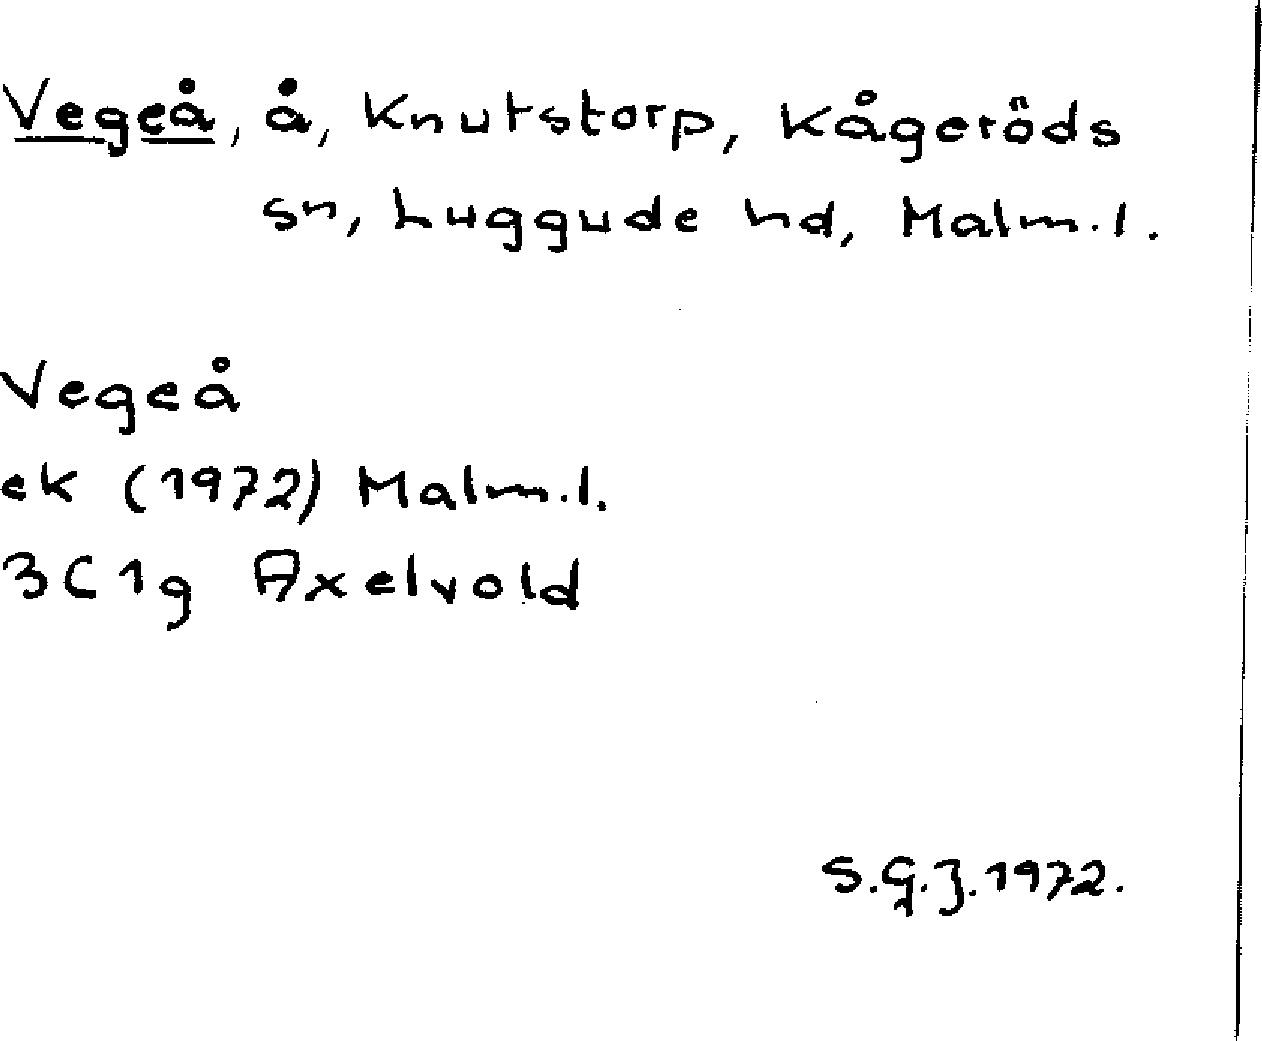 Vegeå, å, Knutstorp, Kågeröds
sn, Luggude hd, Malm.l.
Vegeå
ek (1972) Malm.l.
3C1g Axelvold
S.G.J. 1972.